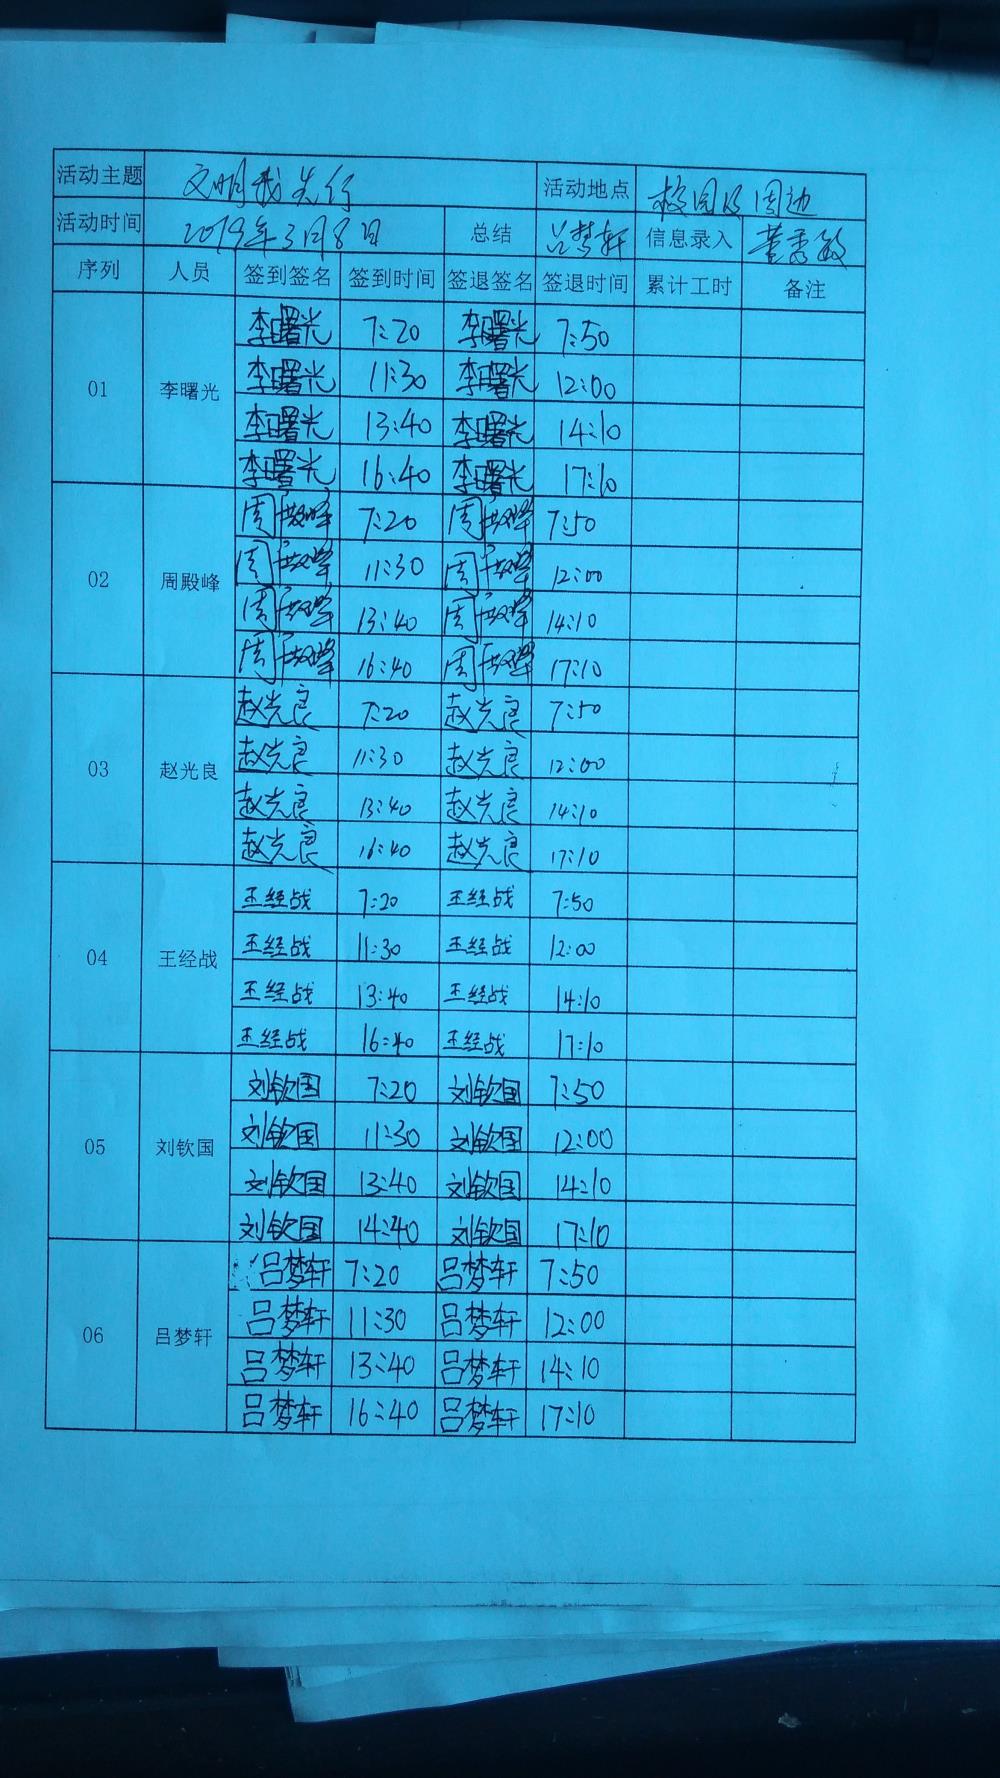 活动主题 文明我先行 活动地点 校园及周边
活动时间 2019年3月8日 总结 吕梦轩 信息录入 董秀敏
序列 人员 签到签名 签到时间 签退签名 签退时间 累计工时 备注
李曙光 7:20 李曙光 7:50
01 李曙光 李曙光 11:30 李曙光 12:00
李曙光 13:40 李曙光 14:10
李曙光 16:40 李曙光 17:10
周殿峰 7:20 周殿峰 7:50
02 周殿峰 周殿峰 11:30 周殿峰 12:00
周殿峰 13:40 周殿峰 14:10
周殿峰 16:40 周殿峰 17:10
赵光良 7:20 赵光良 7:50
03 赵光良 赵光良 11:30 赵光良 12:00
赵光良 13:40 赵光良 14:10
赵光良 16:40 赵光良 17:10
王经战 7:20 王经战 7:50
04 王经战 王经战 11:30 王经战 12:00
王经战 13:40 王经战 14:10
王经战 16:40 王经战 17:10
刘钦国 7:20 刘钦国 7:50
05 刘钦国 刘钦国 11:30 刘钦国 12:00
刘钦国 13:40 刘钦国 14:10
刘钦国 14:40 刘钦国 17:10
吕梦轩 7:20 吕梦轩 7:50
06 吕梦轩 吕梦轩 11:30 吕梦轩 12:00
吕梦轩 13:40 吕梦轩 14:10
吕梦轩 16:40 吕梦轩 17:10